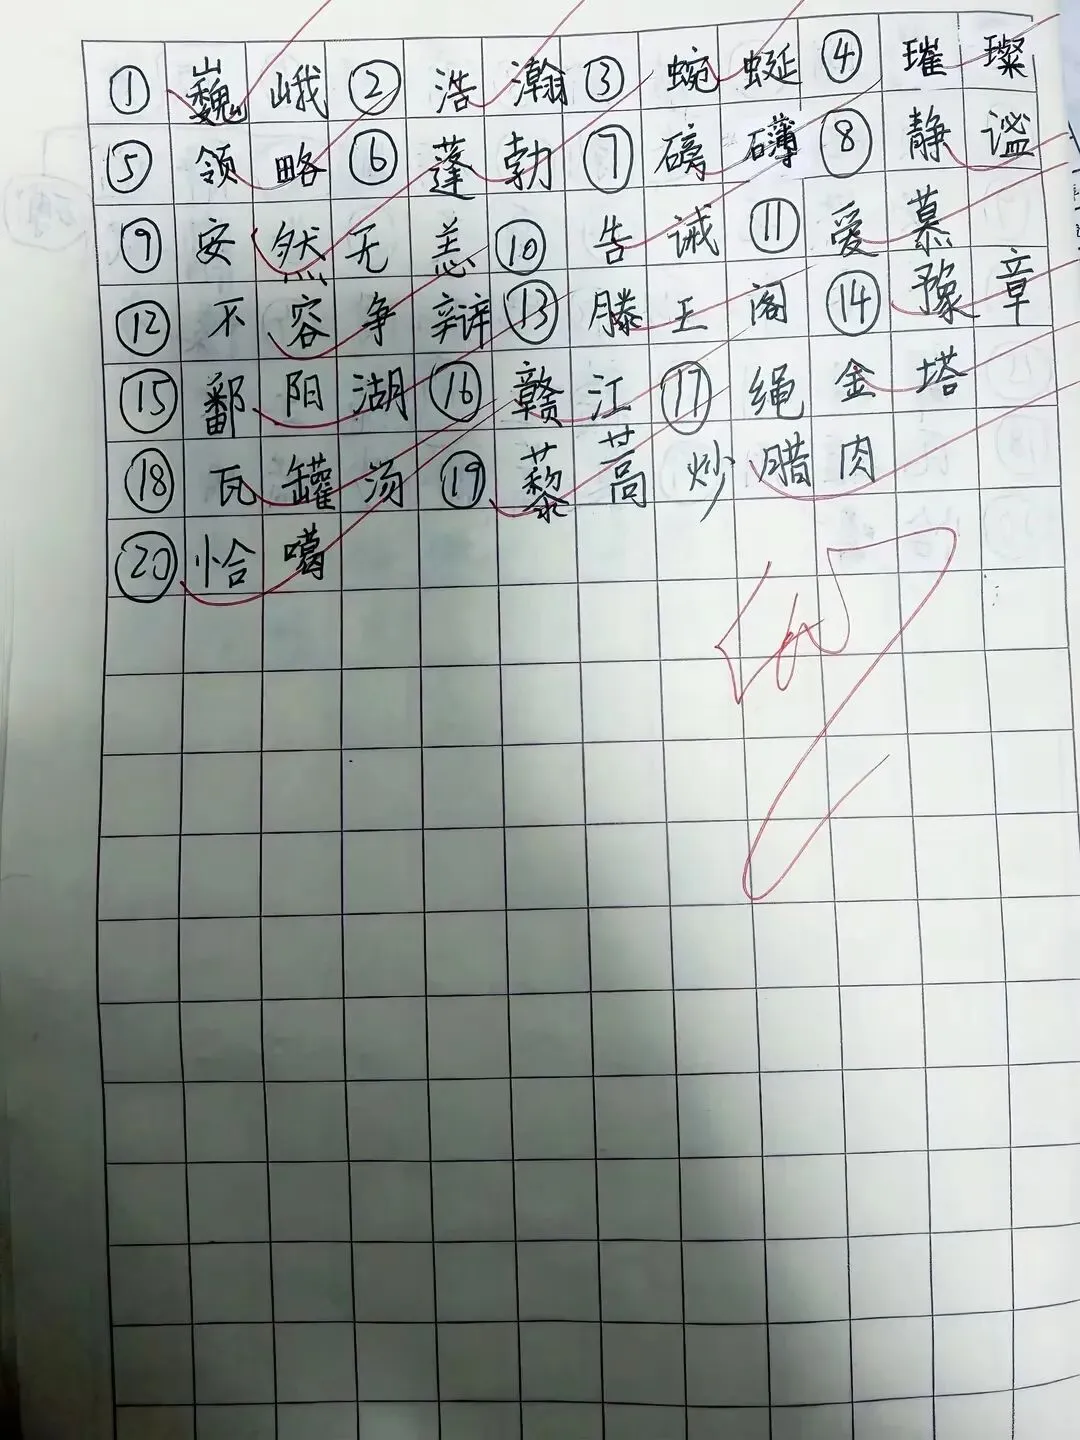 ① 巍峨 ② 浩瀚 ③ 蜿蜒 ④ 璀璨
⑤ 领略 ⑥ 蓬勃 ⑦ 磅礴 ⑧ 静谧
⑨ 安然无恙 ⑩ 告诫 ⑪ 爱慕
⑫ 不容争辩 ⑬ 滕王阁 ⑭ 豫章
⑮ 鄱阳湖 ⑯ 赣江 ⑰ 绳金塔
⑱ 瓦罐汤 ⑲ 藜蒿炒腊肉
⑳ 恰噶